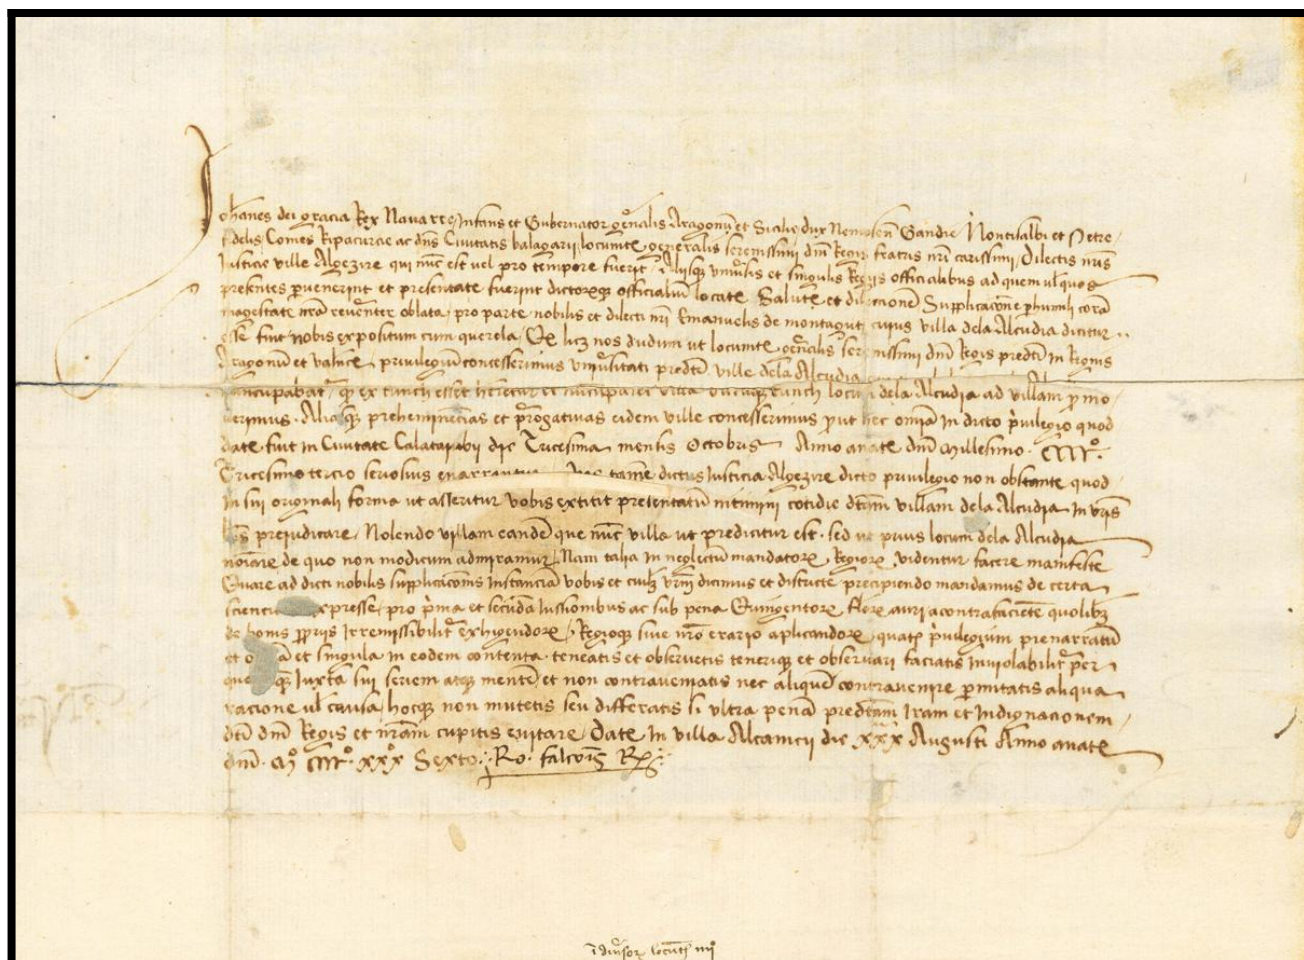 Johanes dei gracia Rex Navarre Infans et Gubernator gñalis Aragonũ et Sicilie dux Nemosen̄ Gandie Montisalbi et Petre
fidelis Comes Ripacurcie ac dñs Civitatis balagarii locumteñ generalis serenissimi dñi Regis fratris nr̃i carissimi Dilectis nr̃is
Justicie ville Algezire qui nũc est vel pro tempore fuerit Aliisq̃ uniṽsis et singulis Regiis officialibus ad quem ul̃ quos
presentes pervenerint et presentate fuerint dictorumq̃ officialiũ locateñ Salutẽ et dilectionẽ Supplicacõne p̱ humili corã
magestate nr̃a revẽnter oblata pro parte nobilis et dilecti nr̃i Emanuelis de montagut cujus villa dela Alcudia dicitur
esse fuit nobis expositum cum querela Qd̃ licz nos dudum ut locumteñ gñalis serenissimi dñi Regis predcĩ in Regnis
Aragonũ et valncie privilegiũ concesserimus uniṽsitati predcẽ ville dela Alcudia
nuncupabat̃ q̃ ex ranch esset dela Alcudia ad villam p̱mo
verimus Aliasq̃ preheminẽcias et p̱rogativas eidem ville concesserimus p̱ut hec om̃ia in dicto p̃vilegio quod
date fuit in Civitate Calataiubii die Tricesima mensis Octobris Anno a nate dñi Millesimo CCCCº
Tricesimo tercio seriosius enarrantur tamẽ dictus Justicia Algezire dicto privilegio non obstante quod
In sui originali forma ut asseritur vobis extitit presentatũ nitimini cotidie dcãm villam dela Alcudia In vr̃is
prejudicare Nolendo villam eandẽ que nũc villa ut predicitur est sed ut prius locum dela Alcudia
noĩare de quo non modicum admiramur Nam talia In neglectũ mandatorũ Regiorũ videntur facere manifeste
Quare ad dicti nobilis supplicacõnis Instanciã vobis et cuilz vr̃m dicimus et districte precipiendo mandamus de certa
sciencia expresse pro p̃ma et secũda Jussionibus ac sub pena Quingentorũ florẽ auri a contrafaciẽte quolibz
de bonis p̱priis Irremissibilit̃ exhigendorũ Regioq̃ sive nr̃o erario aplicandorũ quatẽ p̃vilegium prenarratũ
et oĩa et singula In eodem contenta teneatis et observetis teneriq̃ et observari faciatis Inviolabilit̃ per
Juxta sui seriem atq̃ mentẽ et non contraveniatis nec aliquẽ contravenire p̱mitatis aliqua
racione ul̃ causa hocq̃ non mutetis seu differatis si ultra penã predcãm Iram et Indignacionem
dcĩ dñi Regis et nr̃am cupitis evitare Date In villa Alcanicii die xxx Augusti Anno a nate
dñi Mº CCCCº xxxº Sexto Ro. falcõis Rx̃
ĩ diṽsorũ locũteñ iiijº